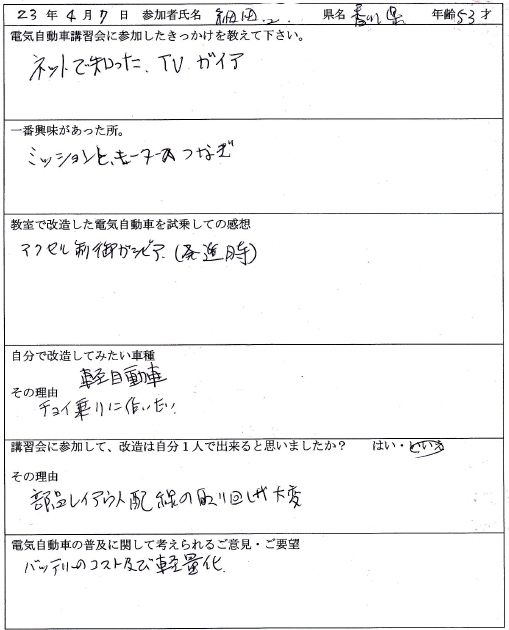 23年4月7日 参加者氏名 県名 香川県 年齢53才
電気自動車講習会に参加したきっかけを教えて下さい。
ネットで知った、TV ガイア
一番興味があった所。
ミッションと、モーターのつなぎ
教室で改造した電気自動車を試乗しての感想
アクセル制御がシビア (発進時)
自分で改造してみたい車種
軽自動車
その理由
チョイ乗りに使いたい
講習会に参加して、改造は自分1人で出来ると思いましたか? はい・いいえ
その理由
部品レイアウト配線の取り回しが大変
電気自動車の普及に関して考えられるご意見・ご要望
バッテリーのコスト及び軽量化